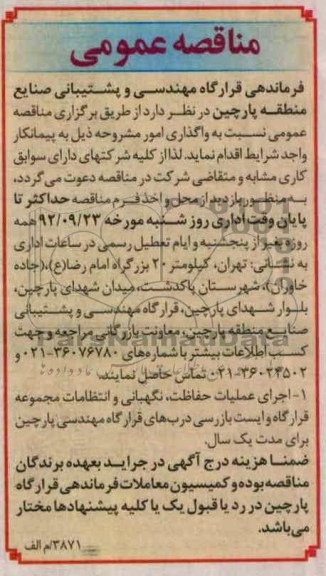 مناقصه عمومی
فرماندهی قرارگاه مهندسی و پشتیبانی صنایع
منطقه پارچین در نظر دارد از طریق برگزاری مناقصه
عمومی نسبت به واگذاری امور مشروحه ذیل به پیمانکار
واجد شرایط اقدام نماید. لذا از کلیه شرکتهای دارای سوابق
کاری مشابه و متقاضی شرکت در مناقصه دعوت می گردد،
به منظور بازدید از محل و اخذ فرم مناقصه حداکثر تا
پایان وقت اداری روز شنبه مورخه ۹۲/۰۹/۲۳ همه
روزه بغیر از پنجشنبه و ایام تعطیل رسمی در ساعات اداری
به نشانی: تهران، کیلومتر ۲۰ بزرگراه امام رضا(ع)،(جاده
خاوران)، شهرستان پاکدشت، میدان شهدای پارچین،
بلوار شهدای پارچین، قرارگاه مهندسی و پشتیبانی
صنایع منطقه پارچین، معاونت بازرگانی مراجعه و جهت
کسب اطلاعات بیشتر با شماره‌های ۳۶۰۷۶۷۸۰-۰۲۱ و
۳۶۰۲۴۵۰۲-۰۲۱ تماس حاصل نمایند.
۱- اجرای عملیات حفاظت، نگهبانی و انتظامات مجموعه
قرارگاه و ایست بازرسی درب‌های قرارگاه مهندسی پارچین
برای مدت یک سال.
ضمنا هزینه درج آگهی در جراید بعهده برندگان
مناقصه بوده و کمیسیون معاملات فرماندهی قرارگاه
پارچین در رد یا قبول یک یا کلیه پیشنهادها مختار
می‌باشد.
۳۸۷۱/م الف